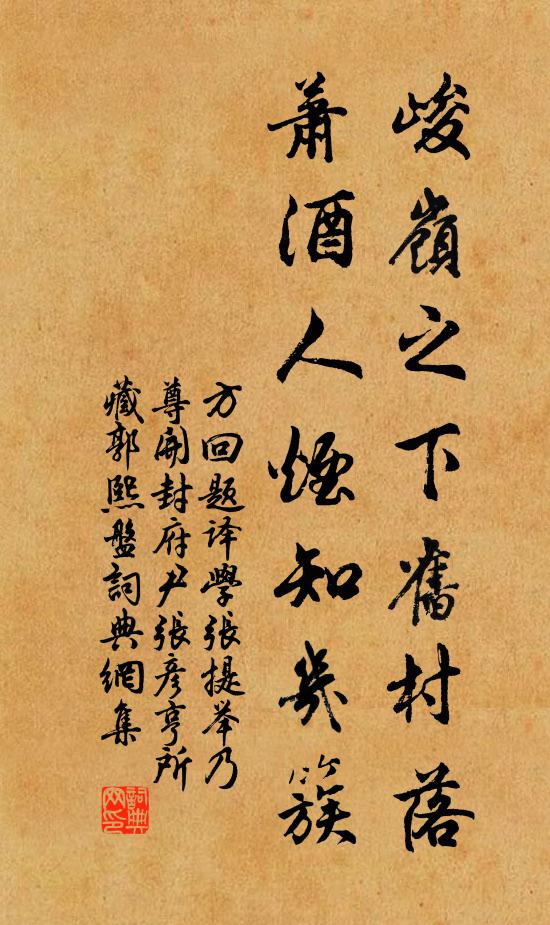 峻嶺之下舊村落
蕭酒人煙知幾簇
方回題译學張提举乃
尊開封府尹張彥亨所
藏郭熙盤詞典網集
詞典网印